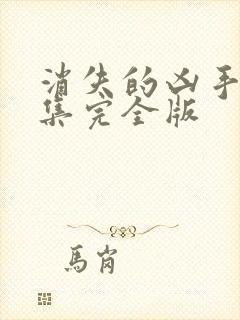 消失的凶手
集完全版
馬肖